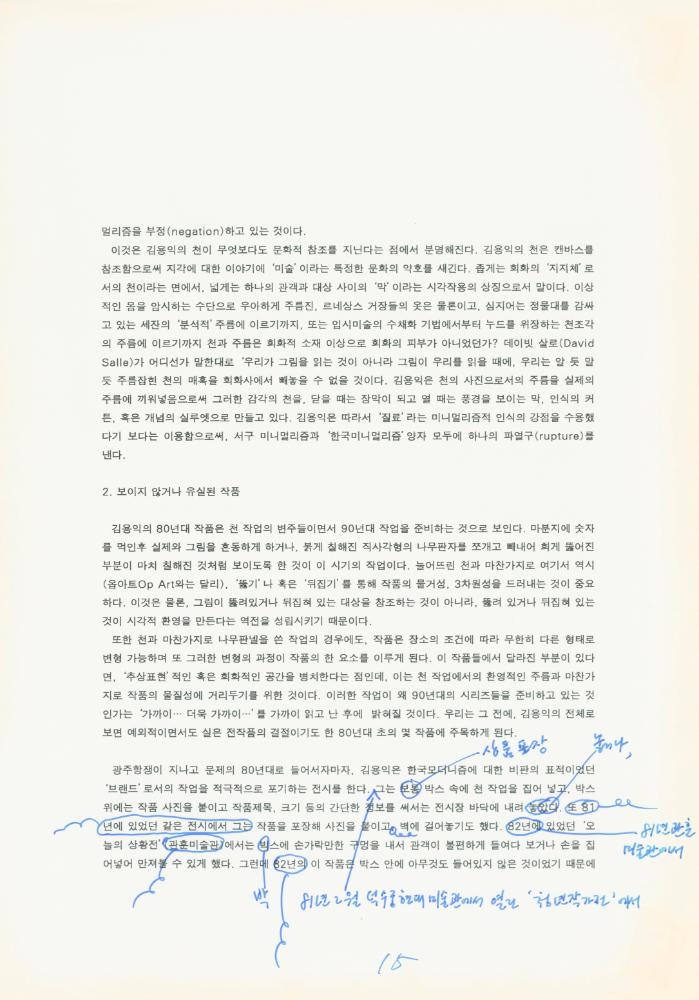 멀리즘을 부정(negation)하고 있는 것이다.
이것은 김용익의 천이 무엇보다도 문화적 참조를 지닌다는 점에서 분명해진다. 김용익의 천은 캔바스를
참조함으로써 지각에 대한 이야기에 '미술' 이라는 특정한 문화의 약호를 새긴다. 좁게는 회화의 '지지체' 로
서의 천이라는 면에서, 넓게는 하나의 관객과 대상 사이의 '막' 이라는 시각작용의 상징으로서 말이다. 이상
적인 몸을 암시하는 수단으로 우아하게 주름진, 르네상스 거장들의 옷은 물론이고, 심지어는 정물대를 감싸
고 있는 세잔의 '분석적' 주름에 이르기까지, 또는 입시미술의 수채화 기법에서부터 누드를 위장하는 천조각
의 주름에 이르기까지 천과 주름은 회화적 소재 이상으로 회화의 피부가 아니었던가? 데이빗 살로(David
Salle)가 어디선가 말한대로 '우리가 그림을 읽는 것이 아니라 그림이 우리를 읽을 때에, 우리는 알 듯 말
듯 주름잡힌 천의 매혹을 회화사에서 빼놓을 수 없을 것이다. 김용익은 천의 사진으로서의 주름을 실제의
주름에 끼워넣음으로써 그러한 감각의 천을, 닫을 때는 장막이 되고 열 때는 풍경을 보이는 막, 인식의 커
튼, 혹은 개념의 실루엣으로 만들고 있다. 김용익은 따라서 '질료' 라는 미니멀리즘적 인식의 강점을 수용했
다기 보다는 이용함으로써, 서구 미니멀리즘과 '한국미니멀리즘' 양자 모두에 하나의 파열구(rupture)를
낸다.
2. 보이지 않거나 유실된 작품
김용익의 80년대 작품은 천 작업의 변주들이면서 90년대 작업을 준비하는 것으로 보인다. 마분지에 숫자
를 먹인후 실제와 그림을 혼동하게 하거나, 붉게 칠해진 직사각형의 나무판자를 쪼개고 빼내어 희게 뚫어진
부분이 마치 칠해진 것처럼 보이도록 한 것이 이 시기의 작업이다. 늘어뜨린 천과 마찬가지로 여기서 역시
(옵아트Op Art와는 달리), '뚫기' 나 혹은 '뒤집기' 를 통해 작품의 물거성, 3차원성을 드러내는 것이 중요
하다. 이것은 물론, 그림이 뚫려있거나 뒤집혀 있는 대상을 참조하는 것이 아니라, 뚫려 있거나 뒤집혀 있는
것이 시각적 환영을 만든다는 역전을 성립시키기 때문이다.
또한 천과 마찬가지로 나무판넬을 쓴 작업의 경우에도, 작품은 장소의 조건에 따라 무한히 다른 형태로
변형 가능하며 또 그러한 변형의 과정이 작품의 한 요소를 이루게 된다. 이 작품들에서 달라진 부분이 있다
면, '추상표현' 적인 혹은 회화적인 공간을 병치한다는 점인데, 이는 천 작업에서의 환영적인 주름과 마찬가
지로 작품의 물질성에 거리두기를 위한 것이다. 이러한 작업이 왜 90년대의 시리즈들을 준비하고 있는 것
인가는 '가까이… 더욱 가까이…' 를 가까이 읽고 난 후에 밝혀질 것이다. 우리는 그 전에, 김용익의 전체로
보면 예외적이면서도 실은 전작품의 결절이기도 한 80년대 초의 몇 작품에 주목하게 된다.
상품 포장
놓거나,
광주항쟁이 지나고 문제의 80년대로 들어서자마자, 김용익은 한국모더니즘에 대한 비판의 표적이었던
'브랜드' 로서의 작업을 적극적으로 포기하는 전시를 한다. 그는 보통 박스 속에 천 작업을 집어 넣고, 박스
위에는 작품 사진을 붙이고 작품제목, 크기 등의 간단한 정보를 써서는 전시장 바닥에 내려 놓았다. 또 81
년에 있었던 같은 전시에서 그는 작품을 포장해 사진을 붙이고, 벽에 걸어놓기도 했다. 82년에 있었던 '오
81년 관훈
미술관에서
늘의 상황전' 관훈미술관에서는 박스에 손가락만한 구멍을 내서 관객이 불편하게 들여다 보거나 손을 집
어넣어 만져볼 수 있게 했다. 그런데 82년의 이 작품은 박스 안에 아무것도 들어있지 않은 것이었기 때문에
박
81년 2월 덕수궁현대미술관에서 열린 '청년작가전' 에서
15